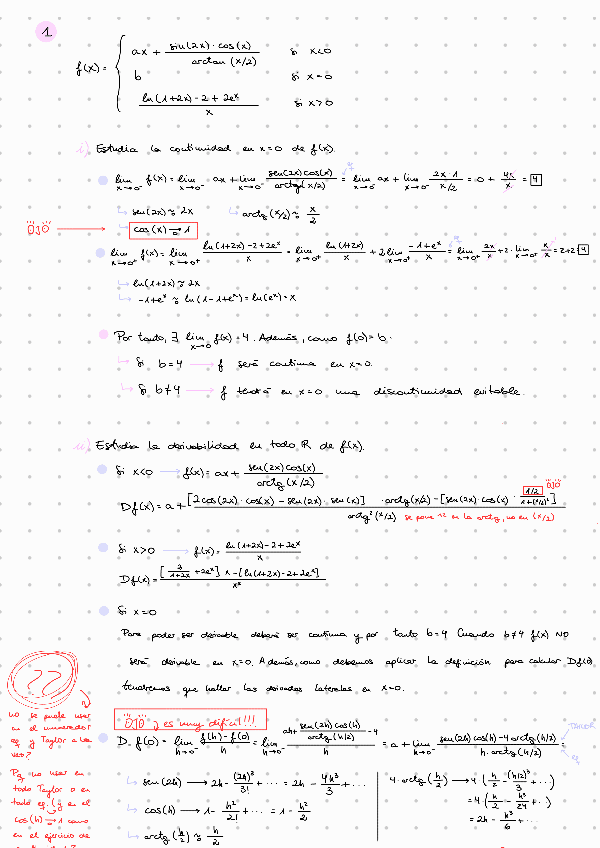 1
f(x) = { ax + sin(2x)·cos(x) / arctan(x/2) si x<0
b si x=0
ln(1+2x)-2+2eˣ / x si x>0
i) Estudia la continuidad en x=0 de f(x).
lim x→0⁻ f(x) = lim x→0⁻ ax + lim x→0⁻ sen(2x)cos(x) / arctg(x/2) = lim x→0⁻ ax + lim x→0⁻ 2x·1 / x/2 = 0 + 4x/x = 4
sen(2x) ≈ 2x arctg(x/2) ≈ x/2
OJO → cos(x) → 1
lim x→0⁺ f(x) = lim x→0⁺ ln(1+2x)-2+2eˣ / x = lim x→0⁺ ln(1+2x) / x + 2 lim x→0⁺ -1+eˣ / x = lim x→0⁺ 2x/x + 2· lim x→0⁺ x/x = 2+2 = 4
ln(1+2x) ≈ 2x
-1+eˣ ≈ ln(1-1+eˣ) = ln(eˣ) = x
Por tanto, ∃ lim x→0 f(x) = 4. Además, como f(0) = b.
Si b=4 → f será continua en x=0.
Si b≠4 → f tendrá en x=0 una discontinuidad evitable.
ii) Estudia la derivabilidad en todo R de f(x).
Si x<0 → f(x) = ax + sen(2x)cos(x) / arctg(x/2)
OJO
Df(x) = a + [2cos(2x)·cos(x) - sen(2x)·sen(x)]·arctg(x/2) - [sen(2x)·cos(x)· 1/2 / 1+(x/2)²] / arctg²(x/2)
se pone 1/2 en la arctg, no en (x/2)
Si x>0 → f(x) = ln(1+2x)-2+2eˣ / x
Df(x) = [2 / 1+2x + 2eˣ] x - [ln(1+2x)-2+2eˣ] / x²
Si x=0
Para poder ser derivable deberá ser continua y por tanto b=4. Cuando b≠4 f(x) NO
será derivable en x=0. Además, como debemos aplicar la definición para calcular Df(0)
tendremos que hallar las derivadas laterales en x=0.
??
no se puede usar
en el numerador
eq y Taylor a la
vez?
Pq no usar en
todo Taylor o en
todo eq. (y en el
cos(h) → 1 como
en el ejercicio de
OJO y es muy difícil!!!
D₋f(0) = lim h→0⁻ f(h)-f(0) / h = lim h→0⁻ ah + sen(2h)cos(h) / arctg(h/2) - 4 / h = a + lim h→0⁻ sen(2h)cos(h) - 4 arctg(h/2) / h·arctg(h/2) =
TAYLOR
eq
sen(2h) → 2h - (2h)³/3! + ... = 2h - 4h³/3 + ...
cos(h) → 1 - h²/2! + ... = 1 - h²/2
arctg(h/2) ≈ h/2
4·arctg(h/2) → 4(h/2 - (h/2)³/3 + ...)
= 4(h/2 - h³/24 + ...)
= 2h - h³/6 + ...